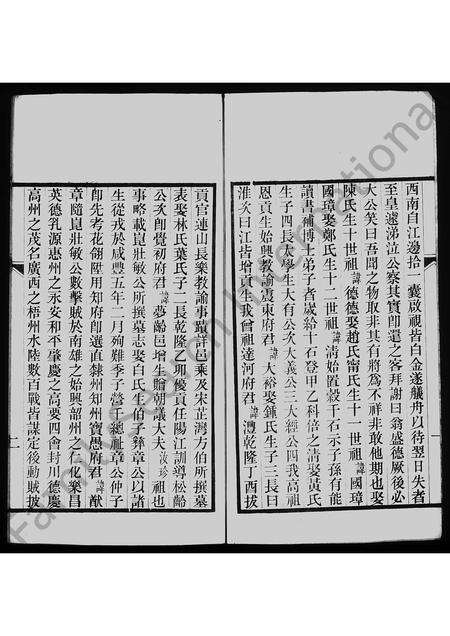 西南自江邊拾一囊啟視皆白金遂艤舟以待翌日失者
至皇遽涕泣公察其實即還之客拜謝曰翁盛德厥後必
大公笑曰吾聞之物取非其有將為不祥非敢他期也娶
陳氏生十世祖諱德德娶趙氏甯氏生十一世祖諱國璋
國璋娶鄭氏生十二世祖諱清始置穀千石示子孫有能
讀書補博士弟子者歲給十石登甲乙科倍之清娶黃氏
生子四長太學生大有公次大義公三大經公四我高祖
恩貢生始興教諭虞東府君諱大裕娶鍾氏生子三長曰
淮次曰江皆增貢生我曾祖達河府君諱澧乾隆丁酉拔
貢官連山長樂教諭事蹟詳邑乘及宋芷灣方伯所撰墓
表娶林氏葉氏子二長乾隆乙卯優貢任陽江訓導松齡
公次即覺初府君諱夢齡邑增生贈朝議大夫汝珍祖也
事略載崑壯敏公所撰墓志娶白氏生伯子彝章公以諸
生從戎於咸豐五年二月殉難季子聲千總祉章公仲子
即先考花翎陞用知府即選直隸州知州寶愚府君諱猷
章隨崑壯敏公數擊賊於南雄之始興韶州之仁化樂昌
英德乳源惠州之永安和平肇慶之高要四會封川德慶
高州之茂名廣西之梧州水陸數百戰皆謀定後動賊披
二
FamilySearch International